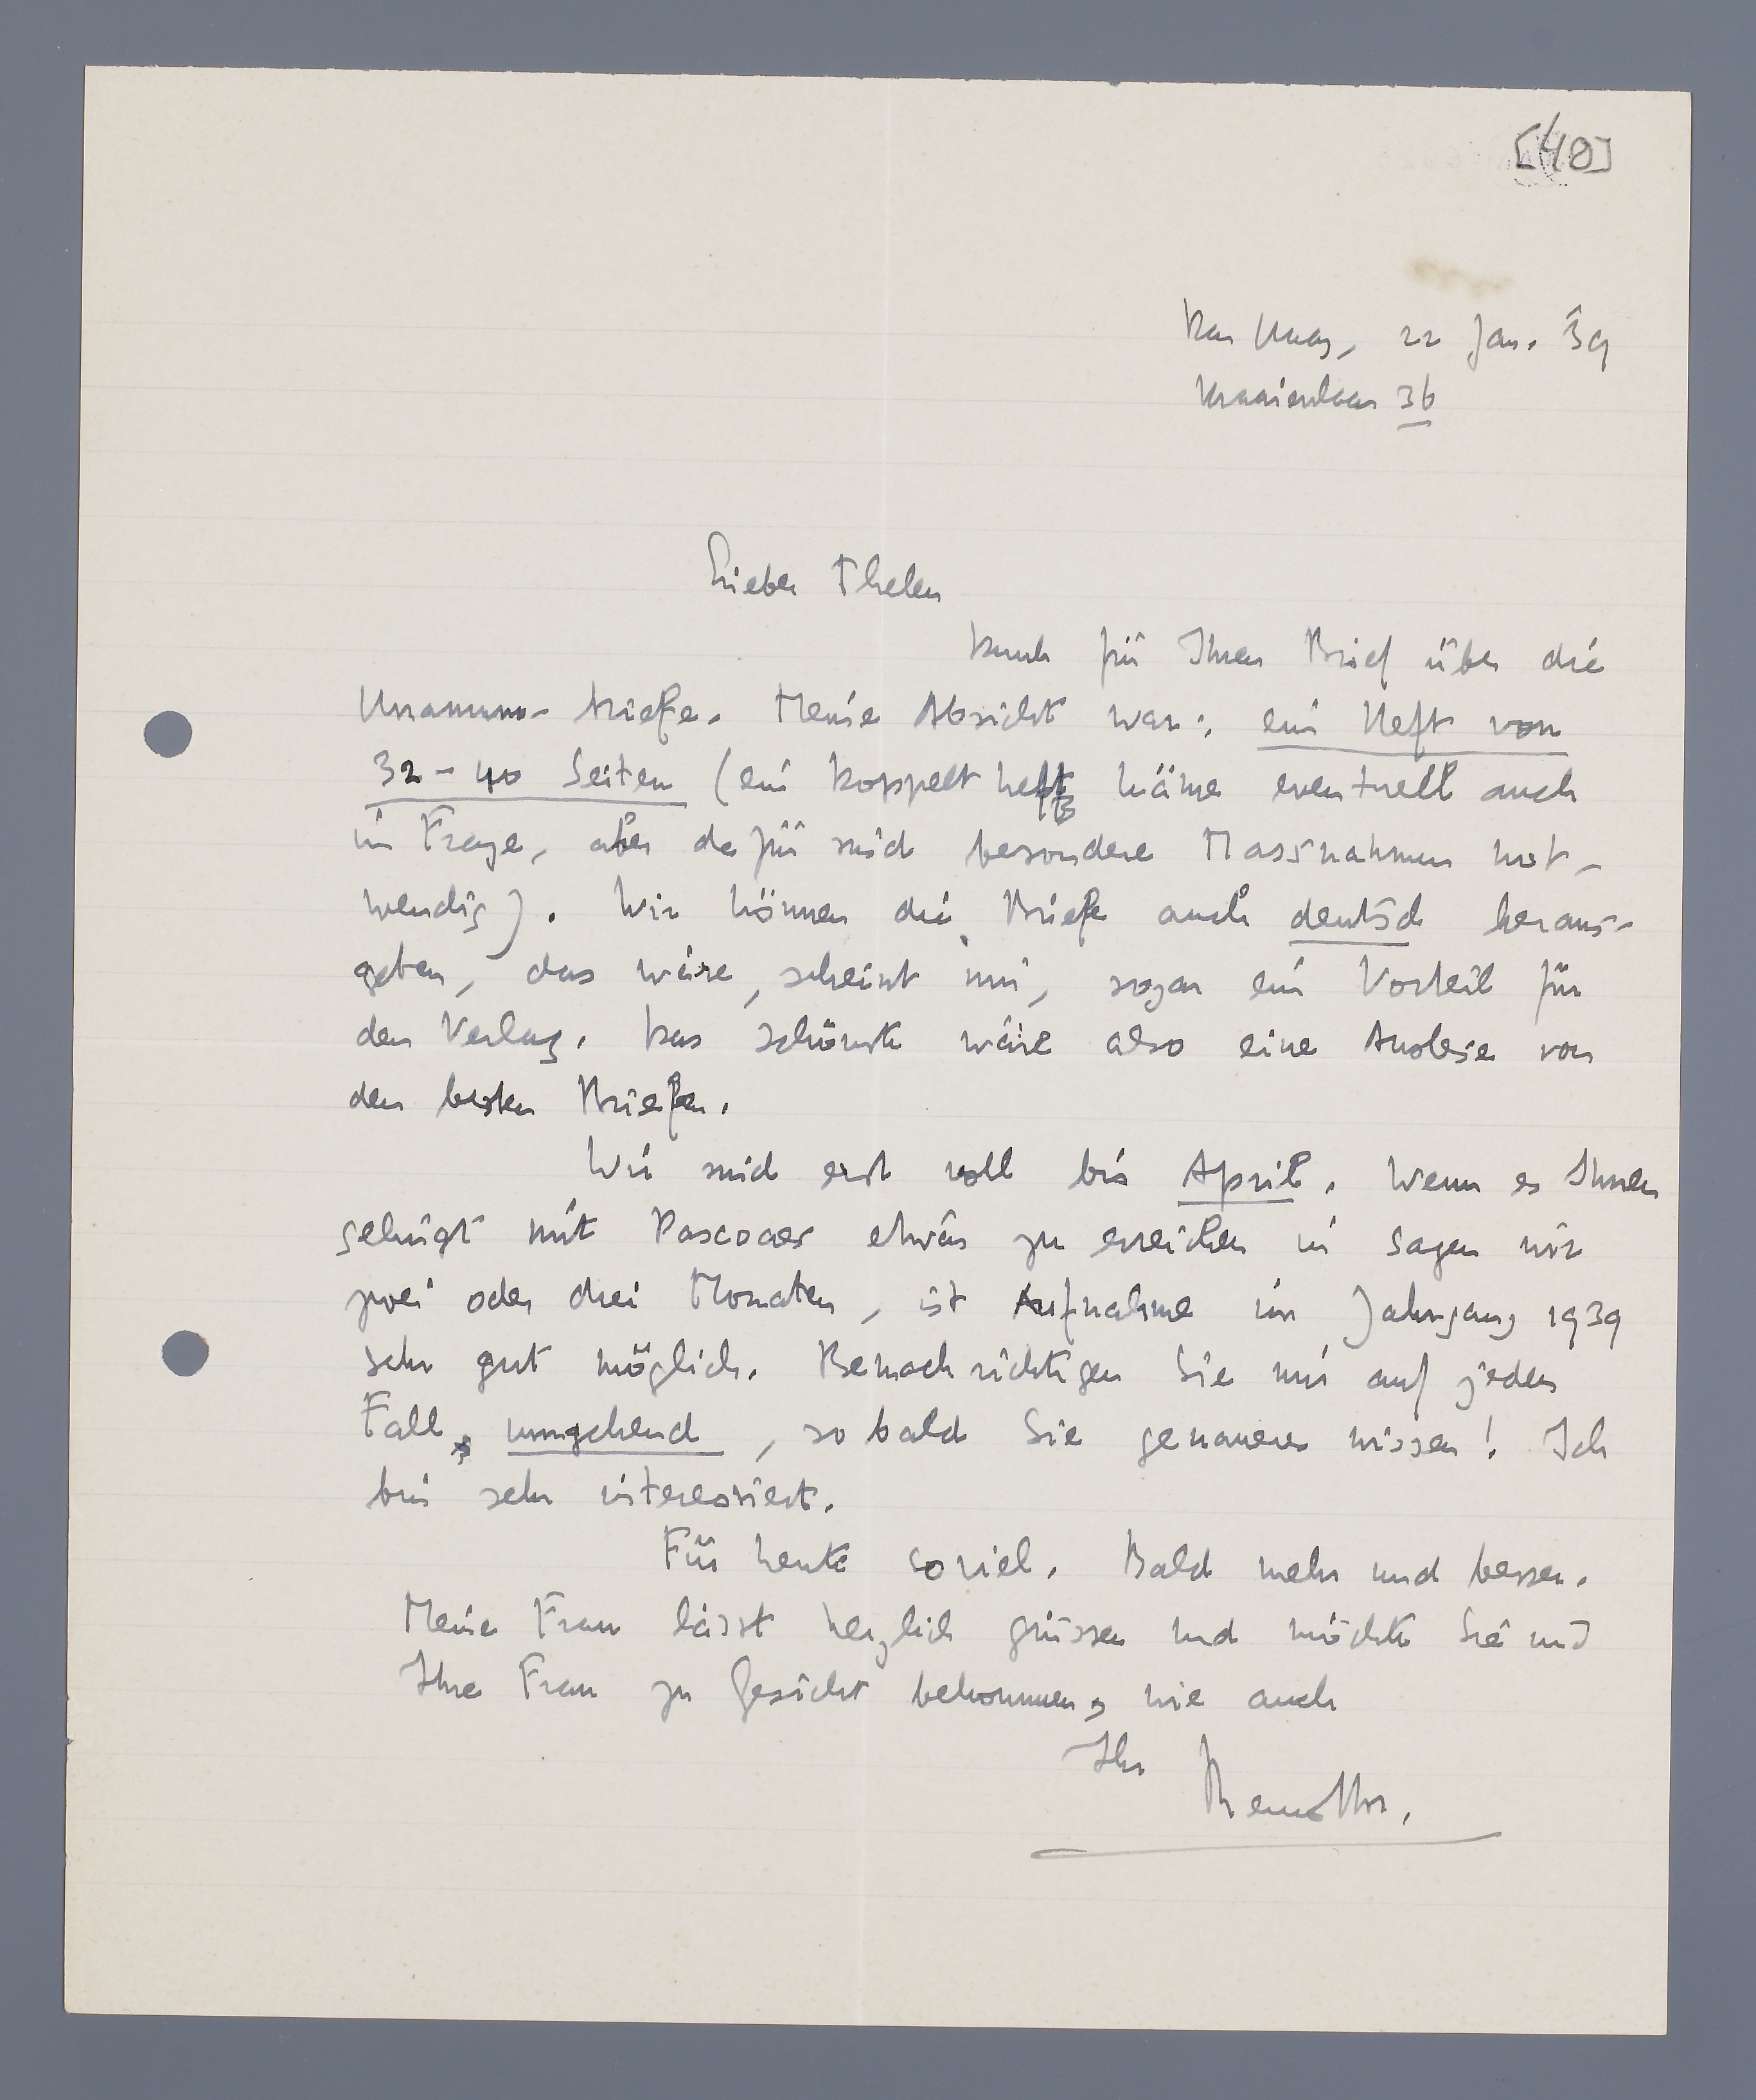 [40]
Den Haag, 22 Jan. 39
Kraaienlaan 36
Lieber Thelen
Dank für Ihren Brief über die
Unamuno-briefe. Meine Absicht war: ein Heft von
32-40 Seiten (ein Doppelt heft käme eventuell auch
in Frage, aber dafür sind besondere Massnahmen not-
wendig). Wir können die Briefe auch deutsch heraus-
geben, das wäre, scheint mir, sogar ein Vorteil für
den Verlag. Das schönste wäre also eine Auslese von
den besten Briefen.
Wir sind erst voll bis April. Wenn es Ihnen
gelingt mit Pascoaes etwas zu erreichen in sagen wir
zwei oder drei Monaten, ist Aufnahme im Jahrgang 1939
sehr gut möglich. Benachrichtigen Sie mir auf jeden
Fall umgehend, sobald Sie genaueres wissen! Ich
bin sehr interessiert.
Für heute soviel. Bald mehr und besser.
Meine Frau lässt herzlich grüssen und möchte Sie und
Ihre Frau zu Gesicht bekommen, wie auch
Ihr